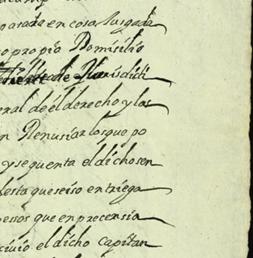 pasada en cosa Jusgada
o propio Domisilio
de Jurisdicti
eral de el derecho y las
n Renusiar los que po
y sequenta el dicho sen
desta que se iso en trega
pesos que en precensia
civio el dicho Capitan